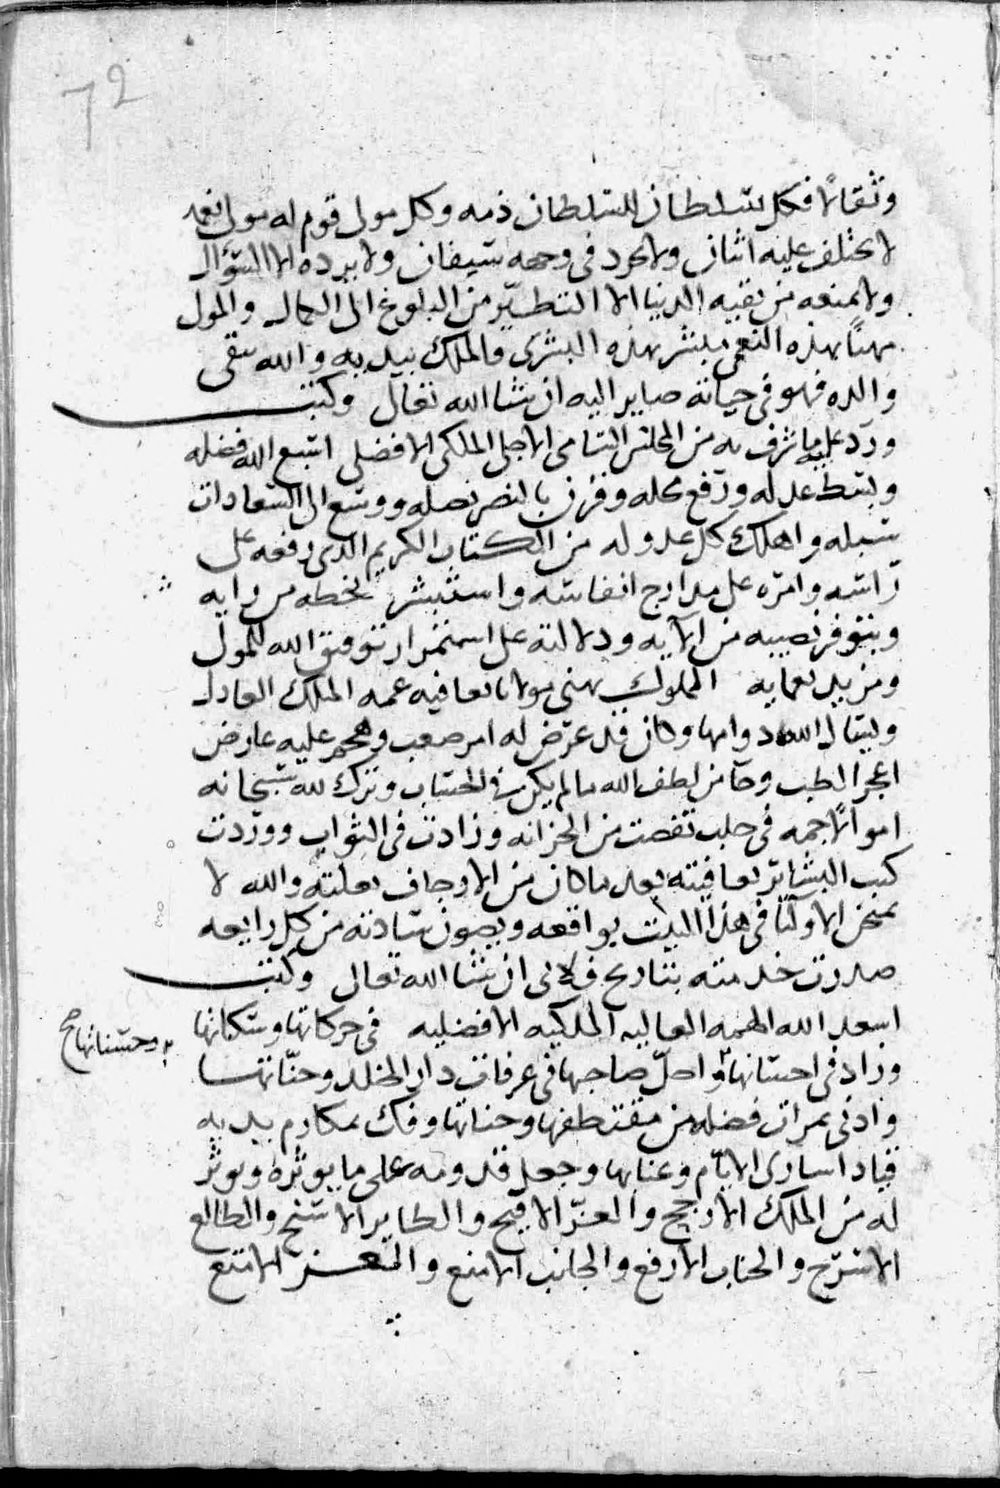 72
وثقالا فكل سلطان للسلطان ذمه وكل مولى قوم له مولى نعمه
لا يختلف عليه اثنان ولا يجرد فى وجهه سيفان ولا يرده الا السؤال
ولا يمنعه من بقيه الدنيا الا التطير من البلوغ الى الكمال والمولى
مهنأ بهذه النعمى مبشر بهذه البشرى والملك بيديه والله يبقى
والده فهو فى حياته صاير اليه ان شا الله تعالى وكتب
ورد عليه ما شرف به من المجلس السامى الاجلى الملكى الافضلى اسبغ الله فضله
وبسط عدله ورفع محله وقرن بالنصر نصله ووسع الى السعادات
سبله واهلك كل عدو له من الكتاب الكريم الذى رفعه على
راسه وامره على مدارج انفاسه واستبشر بخطه من رايه
وبتوفر نصيبه من الآيه ودلالته على استمرار توفيق الله للمولى
ومزيد نعمايه المملوك يهنى مولانا بعافيه عمه الملك العادل
ويسال الله دوامها وكان قد عرض له امر صعب وهجم عليه عارض
اعجز الطب وجا من لطف الله ما لم يكن فى الحساب وترك لله سبحانه
اموالا جمه فى حلب نقصت من الخزانه وزادت فى الثواب ووردت
كتب البشاير بعافيته بعد ما كان من الارجاف بعلته والله لا
يمتحن الاوليا فى هذا البيت بواقعه ويصون سادته من كل رايعه
صدرت خدمته بتاريخ ان شا الله تعالى وكتب
اسعد الله الهمه العاليه الملكيه الافضليه فى حركاتها وسكناتها
وحسناتها صح
وزاد فى احسانها واحل صاحبها فى غرفات دار الخلد وجناتها
وادنى ثمرات فضله من مقتطفها وجناتها وفك بمكارم يديه
قياد اسارى الايام وعناتها وجعل قدومه على ما يوثره ويوثر
له من الملك الارجح والعز الافيح والطاير الاسنح والطالع
الاسرح والجناب الارفع والجانب الامنع والامتع